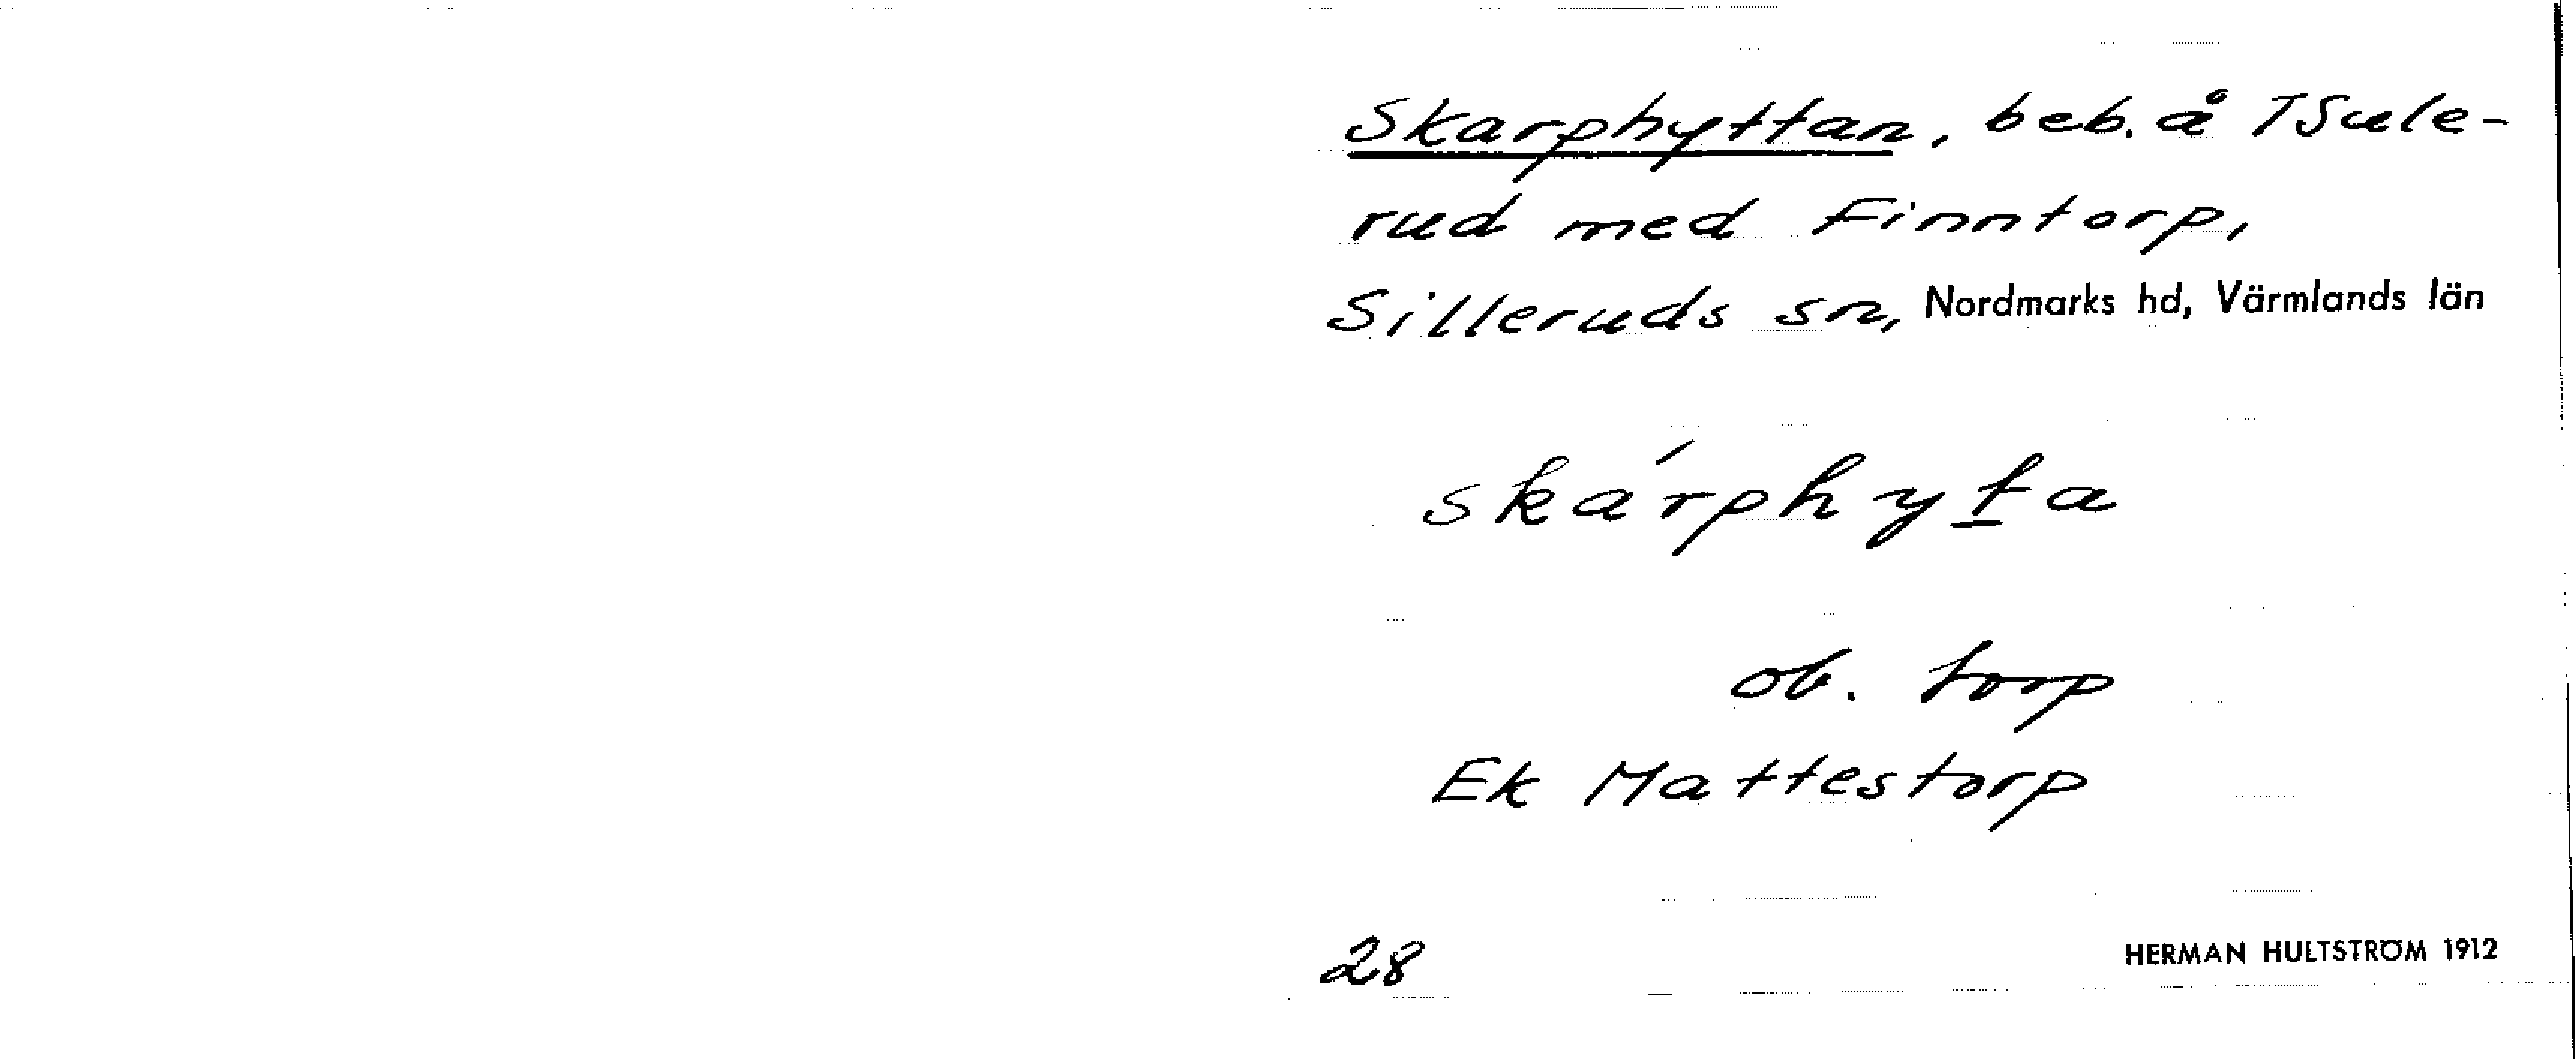 Skarphyttan, beb. å TSule-
rud med Finntorp,
Silleruds sn, Nordmarks hd, Värmlands län
ska´rphyta
ob. torp
Ek Mattestorp
28
HERMAN HULTSTRÖM 1912